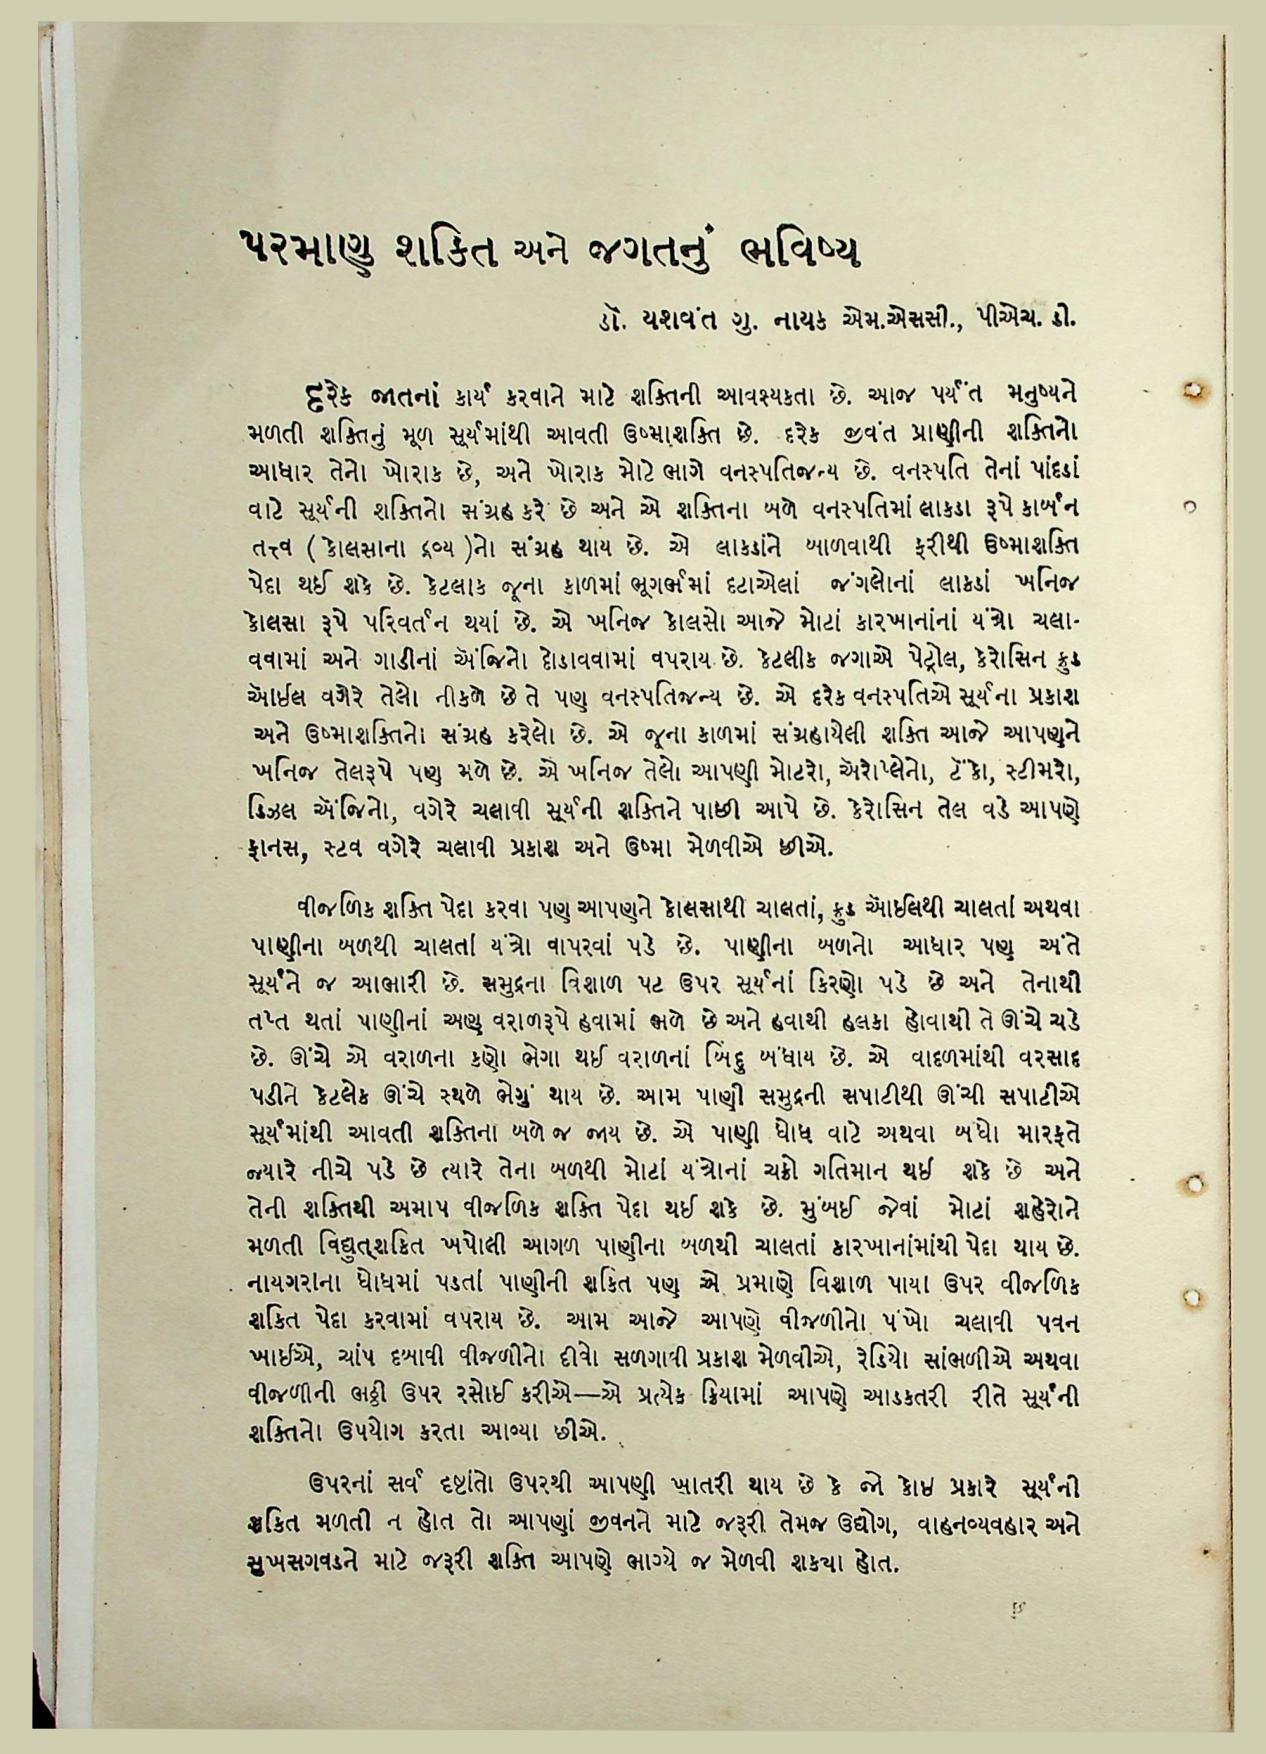 પરમાણુ શક્તિ અને જગતનું ભવિષ્ય
ડૉ. યશવંત ગુ. નાયક એમ.એસસી., પીએચ. ડી.
દરેક જાતનાં કાર્ય કરવાને માટે શક્તિની આવશ્યકતા છે. આજ પર્યંત મનુષ્યને
મળતી શક્તિનું મૂળ સૂર્યમાંથી આવતી ઉષ્માશક્તિ છે. દરેક જીવંત પ્રાણીની શક્તિનો
આધાર તેનો ખોરાક છે, અને ખોરાક મોટે ભાગે વનસ્પતિજન્ય છે. વનસ્પતિ તેનાં પાંદડાં
વાટે સૂર્યની શક્તિનો સંગ્રહ કરે છે અને એ શક્તિના બળે વનસ્પતિમાં લાકડા રૂપે કાર્બન
તત્ત્વ ( કોલસાના દ્રવ્ય )નો સંગ્રહ થાય છે. એ લાકડાંને બાળવાથી ફરીથી ઉષ્માશક્તિ
પેદા થઈ શકે છે. કેટલાક જૂના કાળમાં ભૂગર્ભમાં દટાએલાં જંગલોનાં લાકડાં ખનિજ
કોલસા રૂપે પરિવર્તન થયાં છે. એ ખનિજ કોલસો આજે મોટાં કારખાનાંનાં યંત્રો ચલા-
વવામાં અને ગાડીનાં ઍંજિનો દોડાવવામાં વપરાય છે. કેટલીક જગાએ પેટ્રોલ, કેરોસિન ક્રુડ
ઑઇલ વગેરે તેલો નીકળે છે તે પણ વનસ્પતિજન્ય છે. એ દરેક વનસ્પતિએ સૂર્યના પ્રકાશ
અને ઉષ્માશક્તિનો સંગ્રહ કરેલો છે. એ જૂના કાળમાં સંગ્રહાયેલી શક્તિ આજે આપણને
ખનિજ તેલરૂપે પણ મળે છે. એ ખનિજ તેલો આપણી મોટરો, ઍરોપ્લેનો, ટૅંકો, સ્ટીમરો,
ડિઝલ ઍંજિનો, વગેરે ચલાવી સૂર્યની શક્તિને પાછી આપે છે. કેરોસિન તેલ વડે આપણે
ફાનસ, સ્ટવ વગેરે ચલાવી પ્રકાશ અને ઉષ્મા મેળવીએ છીએ.
વીજળિક શક્તિ પેદા કરવા પણ આપણને કોલસાથી ચાલતાં, ક્રુડ ઑઇલથી ચાલતાં અથવા
પાણીના બળથી ચાલતાં યંત્રો વાપરવાં પડે છે. પાણીના બળનો આધાર પણ અંતે
સૂર્યને જ આભારી છે. સમુદ્રના વિશાળ પટ ઉપર સૂર્યનાં કિરણો પડે છે અને તેનાથી
તપ્ત થતાં પાણીનાં અણુ વરાળરૂપે હવામાં ભળે છે અને હવાથી હલકા હોવાથી તે ઊંચે ચડે
છે. ઊંચે એ વરાળના કણો ભેગા થઈ વરાળનાં બિંદુ બંધાય છે. એ વાદળમાંથી વરસાદ
પડીને કેટલેક ઊંચે સ્થળે ભેગું થાય છે. આમ પાણી સમુદ્રની સપાટીથી ઊંચી સપાટીએ
સૂર્યમાંથી આવતી શક્તિના બળે જ જાય છે. એ પાણી ધોધ વાટે અથવા બંધો મારફતે
જ્યારે નીચે પડે છે ત્યારે તેના બળથી મોટાં યંત્રોનાં ચક્રો ગતિમાન થઈ શકે છે અને
તેની શક્તિથી અમાપ વીજળિક શક્તિ પેદા થઈ શકે છે. મુંબઈ જેવાં મોટાં શહેરોને
મળતી વિદ્યુત્શક્તિ ખપોલી આગળ પાણીના બળથી ચાલતાં કારખાનાંમાંથી પેદા થાય છે.
નાયગરાના ધોધમાં પડતાં પાણીની શક્તિ પણ એ પ્રમાણે વિશાળ પાયા ઉપર વીજળિક
શક્તિ પેદા કરવામાં વપરાય છે. આમ આજે આપણે વીજળીનો પંખો ચલાવી પવન
ખાઈએ, ચાંપ દબાવી વીજળીનો દીવો સળગાવી પ્રકાશ મેળવીએ, રેડિયો સાંભળીએ અથવા
વીજળીની ભઠ્ઠી ઉપર રસોઈ કરીએ—એ પ્રત્યેક ક્રિયામાં આપણે આડકતરી રીતે સૂર્યની
શક્તિનો ઉપયોગ કરતા આવ્યા છીએ.
ઉપરનાં સર્વ દૃષ્ટાંતો ઉપરથી આપણી ખાતરી થાય છે કે જો કોઇ પ્રકારે સૂર્યની
શક્તિ મળતી ન હોત તો આપણાં જીવનને માટે જરૂરી તેમજ ઉદ્યોગ, વાહનવ્યવહાર અને
સુખસગવડને માટે જરૂરી શક્તિ આપણે ભાગ્યે જ મેળવી શકયા હોત.